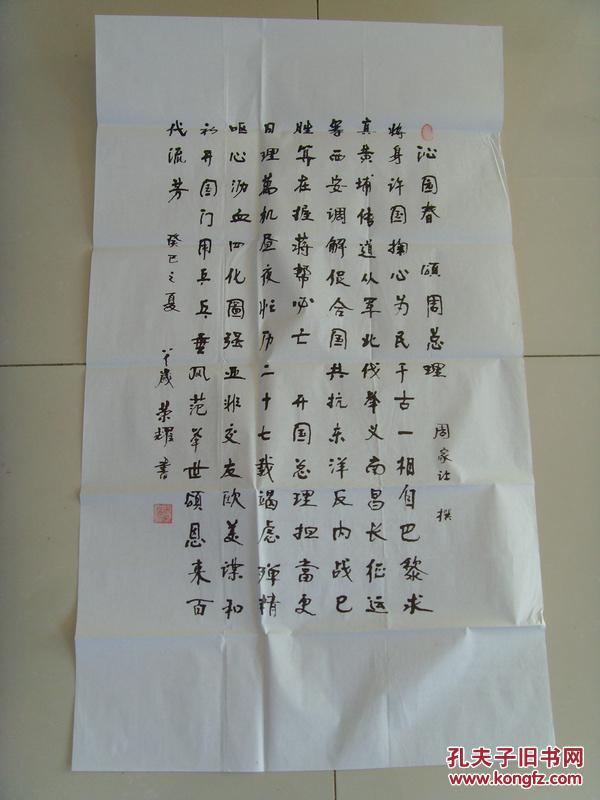 沁园春 颂周总理 周家 撰
将身许国掬心为民千古一相自巴黎求
真黄埔传道从军北伐举义南昌长征运
筹西安调解促合国共抗东洋反内战已
胜算在握蒋帮必亡 开国总理担当更
日理萬机昼夜忙历二十七载竭虑殚精
呕心沥血四化圖强亚非交友欧美谋和
初开国门用兵兵垂风范举世颂恩来百
代流芳 癸巳之夏 八十歲 荣耀書
孔夫子旧书网
www.kongfz.com